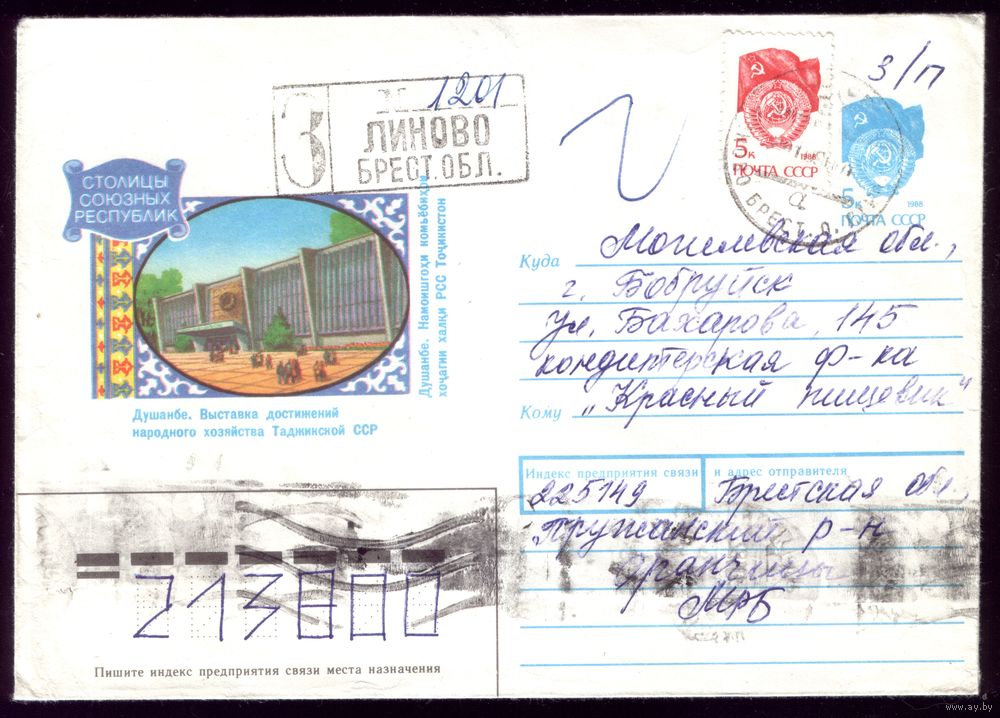 3/П
1201
З
ЛИНОВО
БРЕСТ. ОБЛ.
5к 1988
ПОЧТА СССР
5к 1988
ПОЧТА СССР
БРЕСТ. О.
СТОЛИЦЫ
СОЮЗНЫХ
РЕСПУБЛИК
Душанбе. Намоишгоҳи комьёбиҳои
хоҷагии халқи РСС Тоҷикистон
Душанбе. Выставка достижений
народного хозяйства Таджикской ССР
Куда Могилевская обл.,
г. Бобруйск
ул. Бахарова, 145
кондитерская ф-ка
Кому „Красный пищевик"
Индекс предприятия связи и адрес отправителя
225149 Брестская обл,
Пружанский р-н
Оранчицы
МРБ
213800
Пишите индекс предприятия связи места назначения
www.ay.by